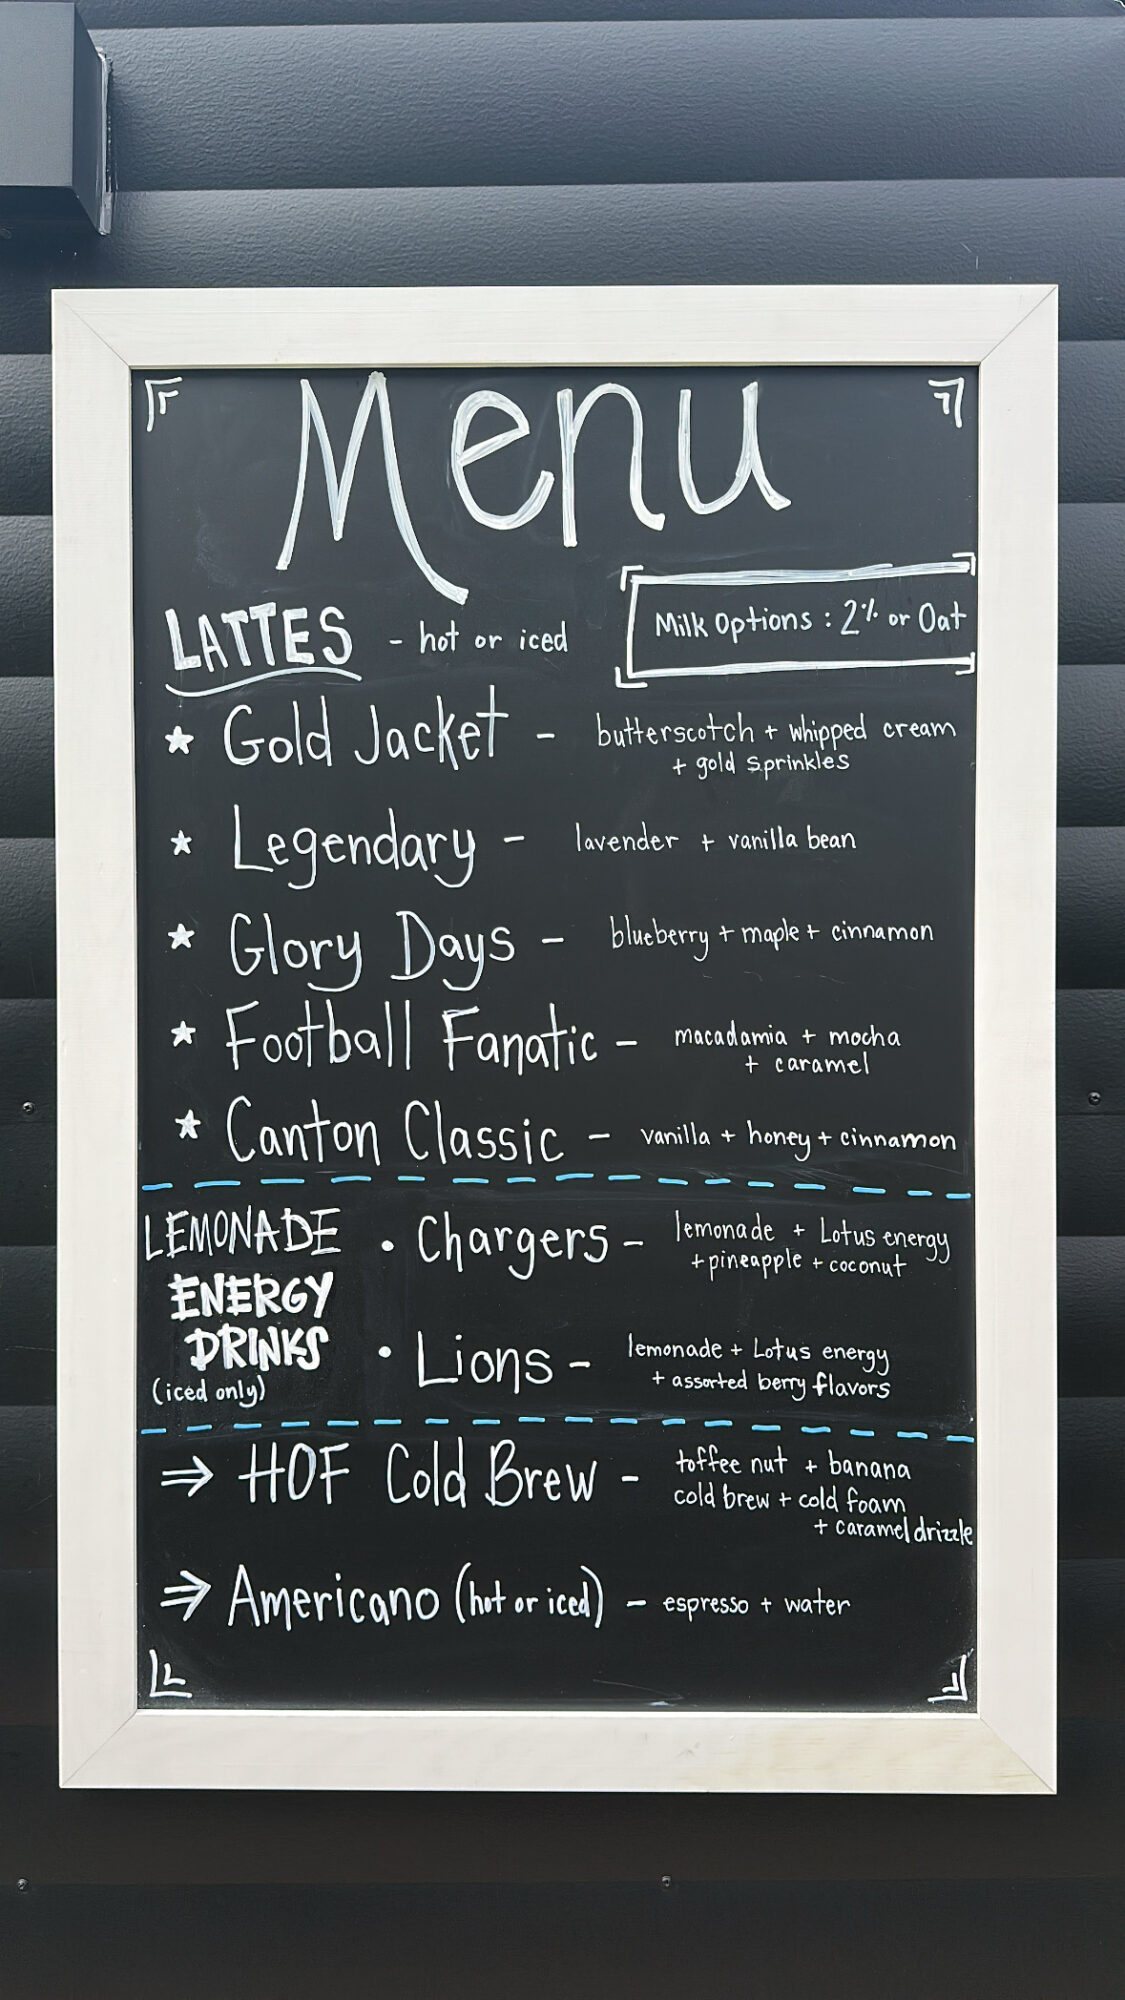 Menu
LATTES - hot or iced
Milk Options : 2% or Oat
★ Gold Jacket - butterscotch + whipped cream
+ gold sprinkles
★ Legendary - lavender + vanilla bean
★ Glory Days - blueberry + maple + cinnamon
★ Football Fanatic - macadamia + mocha
+ caramel
★ Canton Classic - vanilla + honey + cinnamon
LEMONADE
ENERGY
DRINKS
(iced only)
• Chargers - lemonade + Lotus energy
+ pineapple + coconut
• Lions - lemonade + Lotus energy
+ assorted berry flavors
⇒ HOF Cold Brew - toffee nut + banana
cold brew + cold foam
+ caramel drizzle
⇒ Americano (hot or iced) - espresso + water